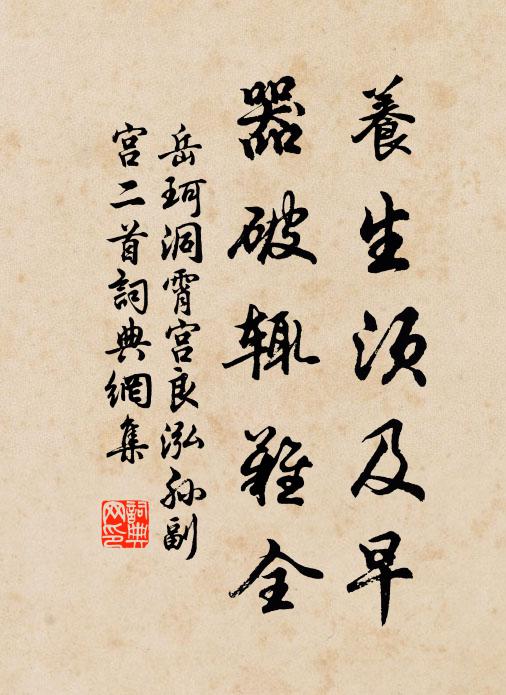 養生須及早
器破辄難全
岳珂洞霄宮良泓孙副
宮二首詞典網集
詞典
网印